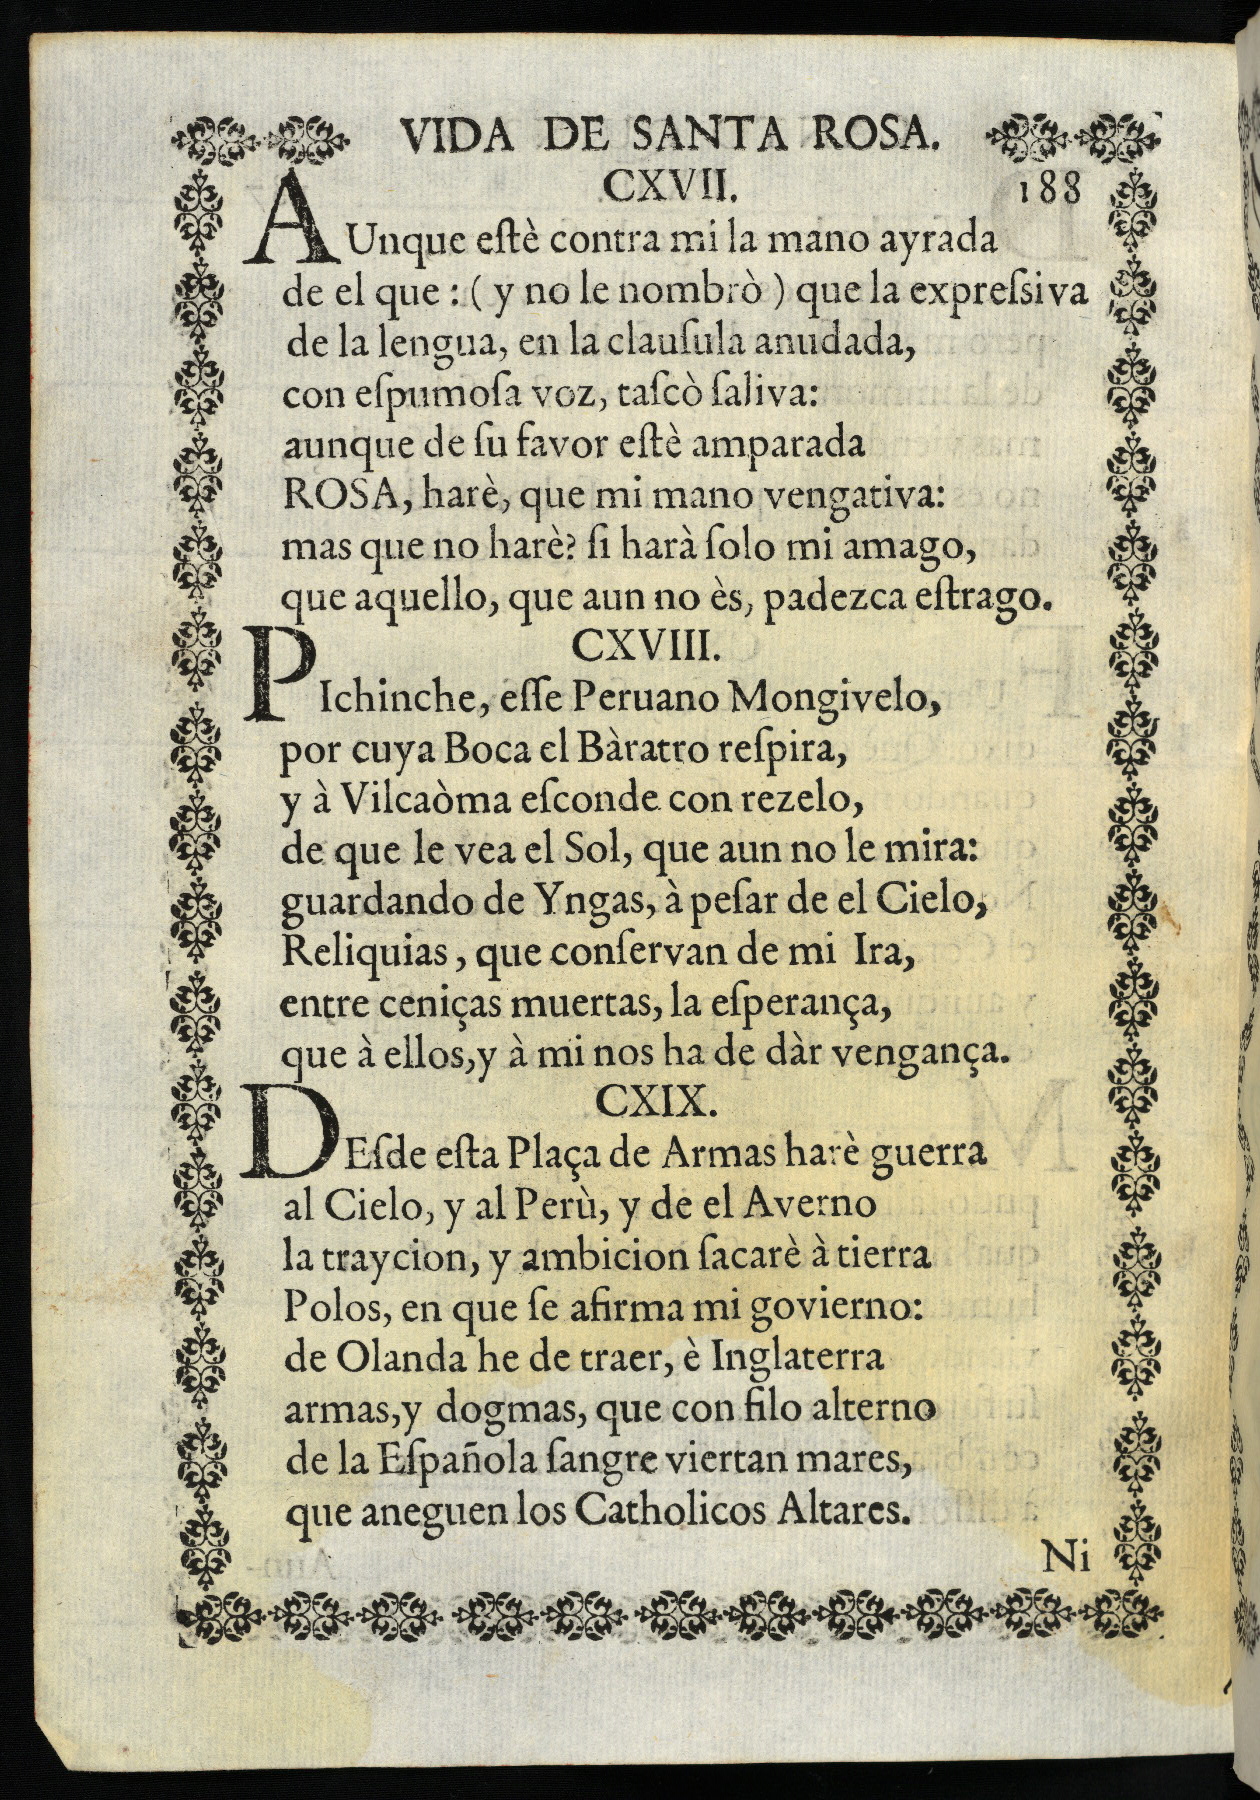 VIDA DE SANTA ROSA.
CXVII. 188
AUnque eſtè contra mi la mano ayrada
de el que : ( y no le nombrò ) que la expreſsiva
de la lengua, en la clauſula anudada,
con eſpumoſa voz, taſcò ſaliva:
aunque de ſu favor eſtè amparada
ROSA, harè, que mi mano vengativa:
mas que no harè? ſi harà ſolo mi amago,
que aquello, que aun no ès, padezca eſtrago.
CXVIII.
PIchinche, eſſe Peruano Mongivelo,
por cuya Boca el Bàratro reſpira,
y à Vilcaòma eſconde con rezelo,
de que le vea el Sol, que aun no le mira:
guardando de Yngas, à peſar de el Cielo,
Reliquias, que conſervan de mi Ira,
entre ceniças muertas, la eſperança,
que à ellos,y à mi nos ha de dàr vengança.
CXIX.
DEſde eſta Plaça de Armas harè guerra
al Cielo, y al Perù, y de el Averno
la traycion, y ambicion ſacarè à tierra
Polos, en que ſe afirma mi govierno:
de Olanda he de traer, è Inglaterra
armas,y dogmas, que con filo alterno
de la Eſpañola ſangre viertan mares,
que aneguen los Catholicos Altares.
Ni